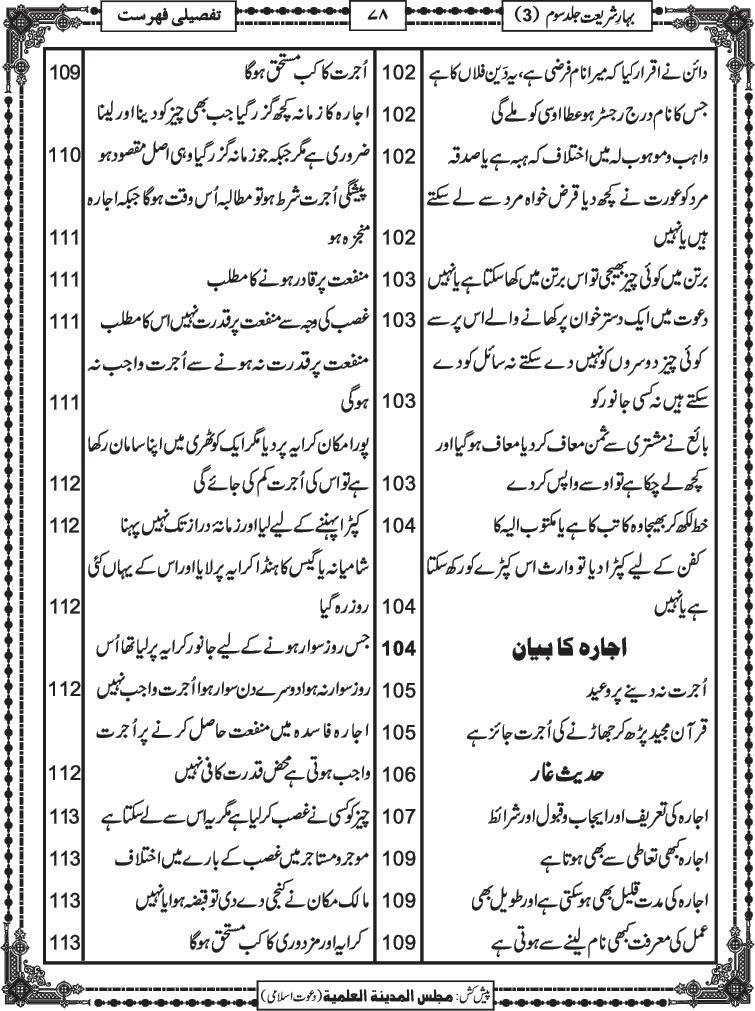 بہارِ شریعت جلد سوم (3)
۷۸
تفصیلی فہرست
دائن نے اقرار کیا کہ میرا نام فرضی ہے، یہ دَین فلاں کا ہے 102
جس کا نام درج رجسٹر ہو عطا اوسی کو ملے گی 102
واہب و موہوب لہ میں اختلاف کہ ہبہ ہے یا صدقہ 102
مرد کو عورت نے کچھ دیا قرض خواہ مرد سے لے سکتے
ہیں یا نہیں 102
برتن میں کوئی چیز بھیجی تو اس برتن میں کھا سکتا ہے یا نہیں 103
دعوت میں ایک دسترخوان پر کھانے والے اس پر سے 103
کوئی چیز دوسروں کو نہیں دے سکتے نہ سائل کو دے
سکتے ہیں نہ کسی جانور کو 103
بائع نے مشتری سے ثمن معاف کر دیا معاف ہوگیا اور
کچھ لے چکا ہے تو اوسے واپس کر دے 103
خط لکھ کر بھیجا وہ کاتب کا ہے یا مکتوب الیہ کا 104
کفن کے لیے کپڑا دیا تو وارث اس کپڑے کو رکھ سکتا
ہے یا نہیں 104
اجارہ کا بیان 104
اُجرت نہ دینے پر وعید 105
قرآن مجید پڑھ کر جھاڑنے کی اُجرت جائز ہے 105
حدیث غار 106
اجارہ کی تعریف اور ایجاب و قبول اور شرائط 107
اجارہ کبھی تعاطی سے بھی ہوتا ہے 109
اجارہ کی مدت قلیل بھی ہوسکتی ہے اور طویل بھی 109
عمل کی معرفت کبھی نام لینے سے ہوتی ہے 109
اُجرت کا کب مستحق ہوگا 109
اجارہ کا زمانہ کچھ گزر گیا جب بھی چیز کو دینا اور لینا
ضروری ہے مگر جبکہ جو زمانہ گزر گیا وہی اصل مقصود ہو 110
پیشگی اُجرت شرط ہو تو مطالبہ اُس وقت ہوگا جبکہ اجارہ
منجزہ ہو 111
منفعت پر قادر ہونے کا مطلب 111
غصب کی وجہ سے منفعت پر قدرت نہیں اس کا مطلب 111
منفعت پر قدرت نہ ہونے سے اُجرت واجب نہ
ہوگی 111
پورا مکان کرایہ پر دیا مگر ایک کوٹھری میں اپنا سامان رکھا
ہے تو اس کی اُجرت کم کی جائے گی 112
کپڑا پہننے کے لیے لیا اور زمانۂ دراز تک نہیں پہنا 112
شامیانہ یا گیس کا ہنڈا کرایہ پر لایا اور اس کے یہاں کئی
روز رہ گیا 112
جس روز سوار ہونے کے لیے جانور کرایہ پر لیا تھا اُس
روز سوار نہ ہوا دوسرے دن سوار ہوا اُجرت واجب نہیں 112
اجارہ فاسدہ میں منفعت حاصل کرنے پر اُجرت
واجب ہوتی ہے محض قدرت کافی نہیں 112
چیز کو کسی نے غصب کرلیا ہے مگر یہ اس سے لے سکتا ہے 113
موجر و مستاجر میں غصب کے بارے میں اختلاف 113
مالک مکان نے کنجی دے دی تو قبضہ ہوا یا نہیں 113
کرایہ اور مزدوری کا کب مستحق ہوگا 113
پیش کش: مجلس المدینۃ العلمیۃ (دعوت اسلامی)